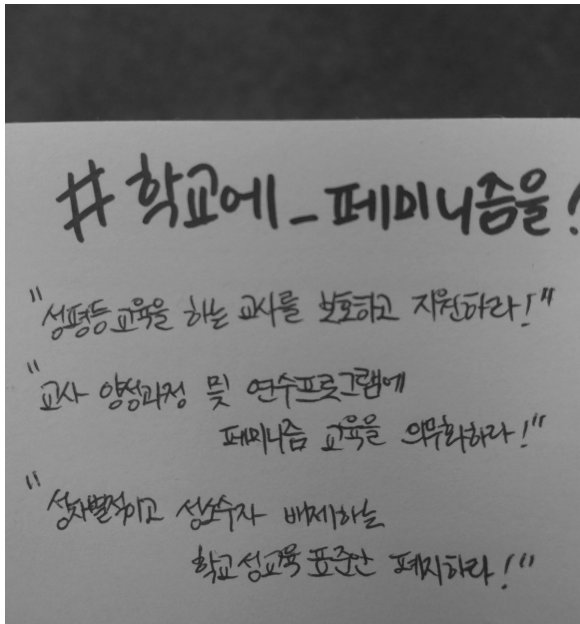 #학교에_페미니즘을!
"성평등 교육을 하는 교사를 보호하고 지원하라!"
"교사 양성과정 및 연수프로그램에
페미니즘 교육을 의무화하라!"
"성차별적이고 성소수자 배제하는
학교 성교육 표준안 폐지하라!"